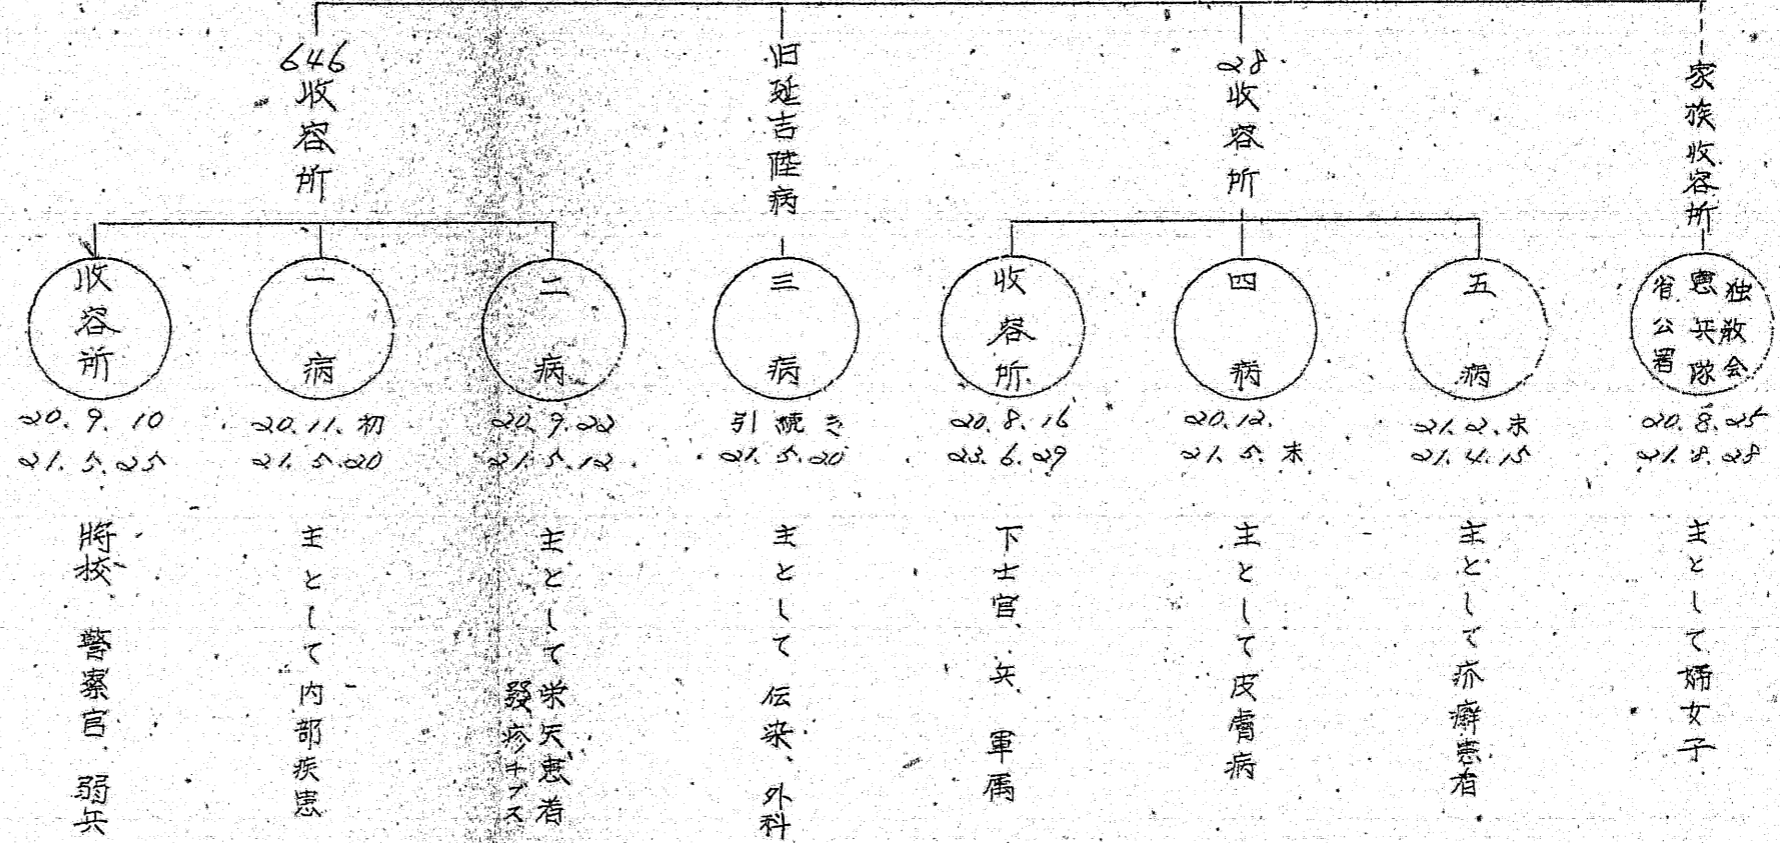 646收容所
旧延吉陸病
28收容所
家族收容所
收容所
20.9.10
21.5.25
將校 警察官 弱兵
一病
20.11.初
21.5.20
主として内部疾患
二病
20.9.22
21.5.12
主として栄失患者
發疹チブス
三病
引続き
21.5.20
主として伝染、外科
收容所
20.8.16
23.6.29
下士官、兵 軍属
四病
20.12.
21.5.末
主として皮膚病
五病
21.2.末
21.4.15
主として疥癬患者
独教会
憲兵隊
省公署
20.8.25
21.8.28
主として婦女子